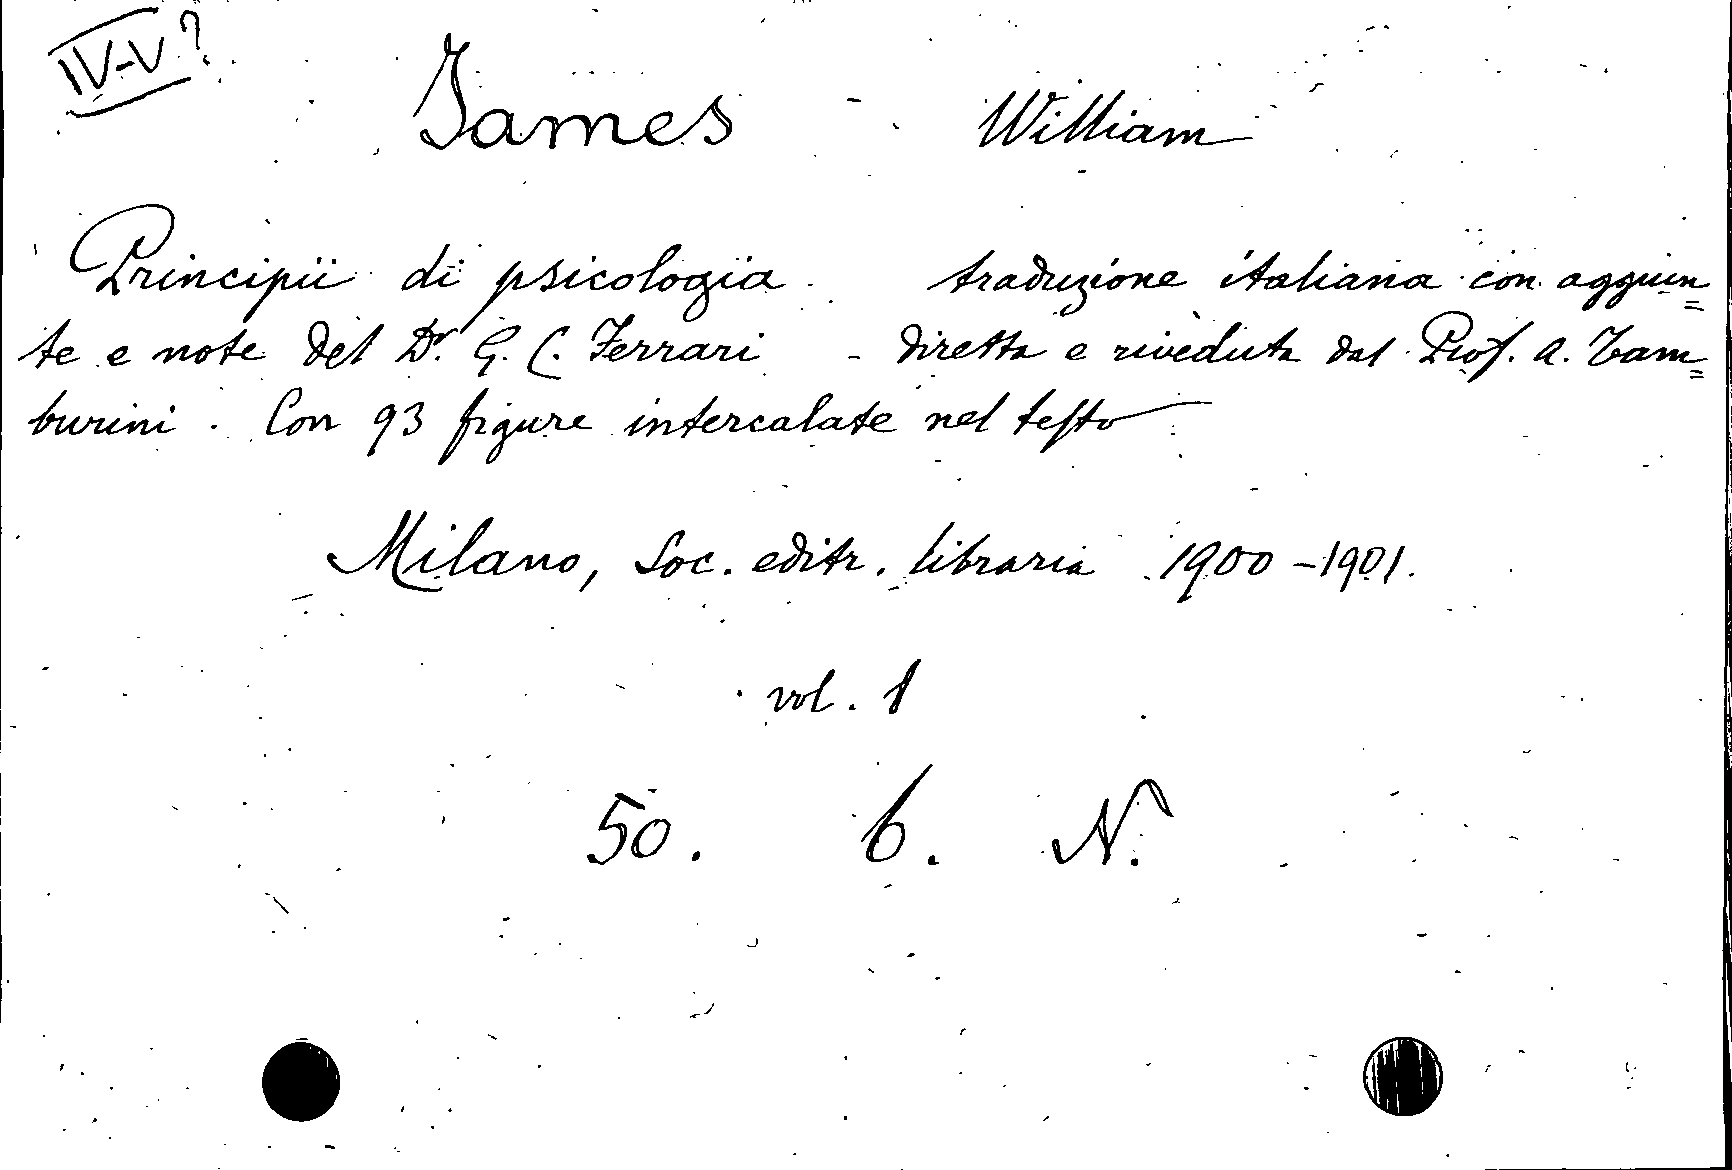 IV-V?
James William
Principii di psicologia traduzione italiana con aggiun=
te e note del Dr. G. C. Ferrari - diretta e riveduta dal Prof. A. Tam=
burini. Con 93 figure intercalate nel testo
Milano, Soc. editr. libraria 1900-1901.
vol. 1
50. 6. N.